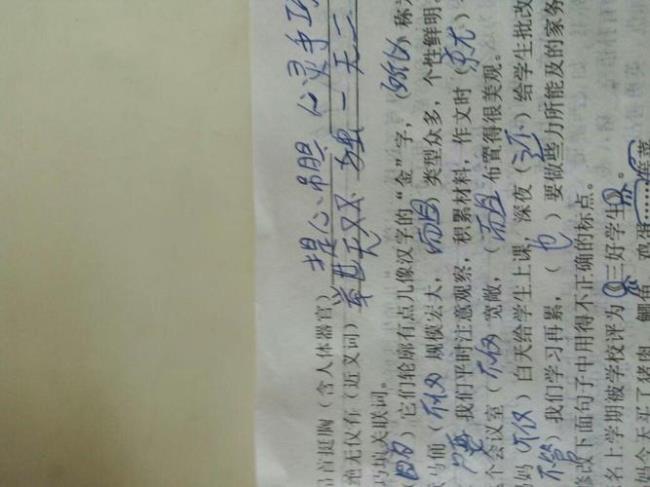 首挺胸（含人体器官）提心吊胆 心灵手巧
绝无仅有（近义词）举世无双 独一无二
填关联词。
因为），它们轮廓有点儿像汉字的“金”字，（所以）称为
马俑（不仅）规模宏大，（而且）类型众多，个性鲜明。
只要）我们平时注意观察，积累材料，作文时（
个会议室（不仅）宽敞，（而且）布置得很美观。
妈（不仅）白天给学生上课，深夜（还）给学生批改
不管）我们学习再累，（也）要做些力所能及的家务
修改下面句子中用得不正确的标点。
名上学期被学校评为三好学生。
妈今天买了猪肉、鲫鱼、鸡蛋……等菜